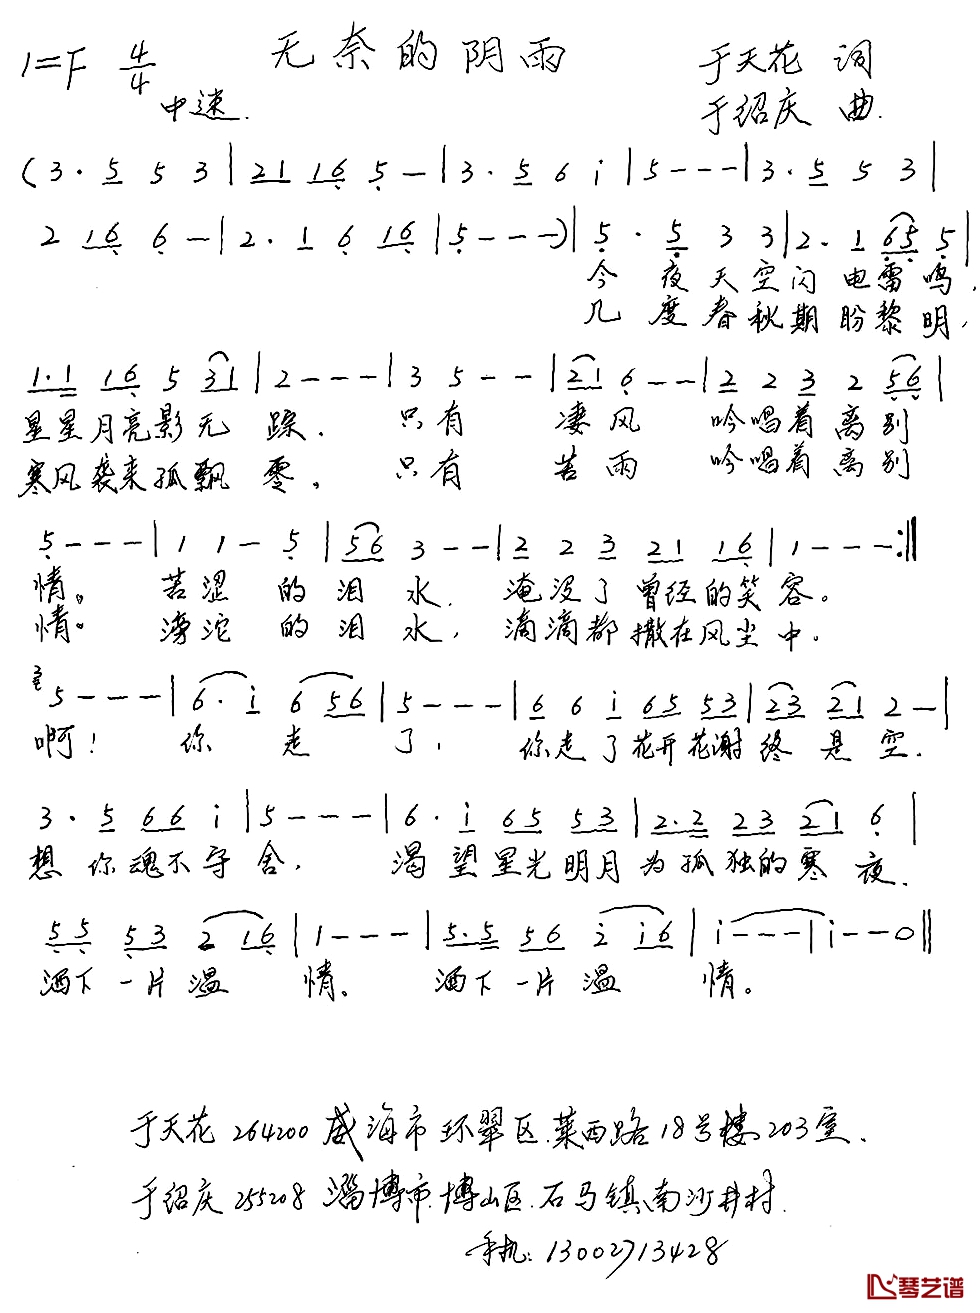 1=F 4/4 无奈的阴雨 于天花 词
中速. 于绍庆 曲.
(3· 5 5 3 | 21 16 5 — | 3· 5 6 i | 5 - - - | 3· 5 5 3 |
2 16 6 — | 2· 1 6 16 | 5 - - -) | 5· 5 3 3 | 2· 1 65 5 |
今夜天空闪电雷鸣,
几度春秋期盼黎明,
1·1 16 5 31 | 2 - - - | 3 5 - - | 21 6 - - | 2 2 3 2 56 |
星星月亮影无踪. 只有凄风 吟唱着离别
寒风袭来孤飘零, 只有苦雨 吟唱着离别
5 - - - | 1 1 — 5 | 56 3 - - | 2 2 3 21 16 | 1 - - - :‖
情。 苦涩的泪水. 淹没了曾经的笑容。
情。 滂沱的泪水, 滴滴都撒在风尘中.
5 - - - | 6· i 6 56 | 5 - - - | 6 6 i 65 53 | 23 21 2 — |
啊! 你走了, 你走了花开花谢终是空.
3· 5 66 i | 5 - - - | 6· i 65 53 | 2·2 23 21 6 |
想你魂不守舍, 渴望星光明月为孤独的寒夜.
55 53 2 16 | 1 - - - | 5·5 56 2 i6 | i - - - | i - - 0 ‖
洒下一片温情。 洒下一片温情。
于天花 264200 威海市环翠区.莱西路18号楼203室.
于绍庆 255208 淄博市.博山区.石马镇.南沙井村.
手机: 13002713428
琴艺谱